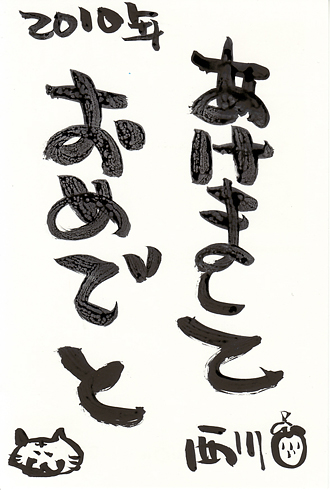 2010年
あけまして
おめでと
西川